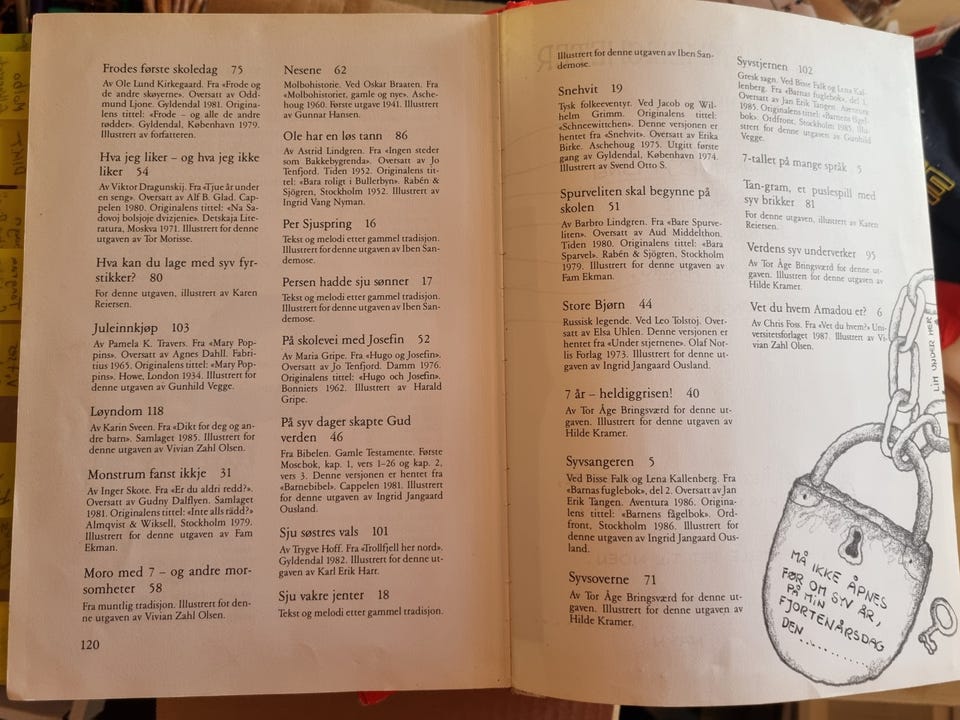 Frodes første skoledag 75
Av Ole Lund Kirkegaard. Fra «Frode og
de andre skøyerne». Oversatt av Odd-
mund Ljone. Gyldendal 1981. Origina-
lens tittel: «Frode – og alle de andre
rødder». Gyldendal, København 1979.
Illustrert av forfatteren.
Hva jeg liker – og hva jeg ikke
liker 54
Av Viktor Dragunskij. Fra «Tjue år under
en seng». Oversatt av Alf B. Glad. Cap-
pelen 1980. Originalens tittel: «Na Sa-
dovoj bolsjoje dvizjenie». Detskaja Lite-
ratura, Moskva 1971. Illustrert for denne
utgaven av Tor Morisse.
Hva kan du lage med syv fyr-
stikker? 80
For denne utgaven, illustrert av Karen
Reiersen.
Juleinnkjøp 103
Av Pamela K. Travers. Fra «Mary Pop-
pins». Oversatt av Agnes Dahll. Fabri-
tius 1965. Originalens tittel: «Mary Pop-
pins». Howe, London 1934. Illustrert for
denne utgaven av Gunhild Vegge.
Løyndom 118
Av Karin Sveen. Fra «Dikt for deg og an-
dre barn». Samlaget 1985. Illustrert for
denne utgaven av Vivian Zahl Olsen.
Monstrum fanst ikkje 31
Av Inger Skote. Fra «Er du aldri redd?».
Oversatt av Gudny Dalflyen. Samlaget
1981. Originalens tittel: «Inte alls rädd?»
Almqvist & Wiksell, Stockholm 1979.
Illustrert for denne utgaven av Fam
Ekman.
Moro med 7 – og andre mor-
somheter 58
Fra muntlig tradisjon. Illustrert for den-
ne utgaven av Vivian Zahl Olsen.
120
Nesene 62
Molbohistorie. Ved Oskar Braaten. Fra
«Molbohistorier, gamle og nye». Asche-
houg 1960. Første utgave 1941. Illustrert
av Gunnar Hansen.
Ole har en løs tann 86
Av Astrid Lindgren. Fra «Ingen steder
som Bakkebygrenda». Oversatt av Jo
Tenfjord. Tiden 1952. Originalens tit-
tel: «Bara roligt i Bullerbyn». Rabén &
Sjögren, Stockholm 1952. Illustrert av
Ingrid Vang Nyman.
Per Sjuspring 16
Tekst og melodi etter gammel tradisjon.
Illustrert for denne utgaven av Iben San-
demose.
Persen hadde sju sønner 17
Tekst og melodi etter gammel tradisjon.
Illustrert for denne utgaven av Iben San-
demose.
På skolevei med Josefin 52
Av Maria Gripe. Fra «Hugo og Josefin».
Oversatt av Jo Tenfjord. Damm 1976.
Originalens tittel: «Hugo och Josefin».
Bonniers 1962. Illustrert av Harald
Gripe.
På syv dager skapte Gud
verden 46
Fra Bibelen. Gamle Testamente. Første
Mosebok, kap. 1, vers 1–26 og kap. 2,
vers 3. Denne versjonen er hentet fra
«Barnebibel». Cappelen 1981. Illustrert
for denne utgaven av Ingrid Jangaard
Ousland.
Sju søstres vals 101
Av Trygve Hoff. Fra «Trollfjell her nord».
Gyldendal 1982. Illustrert for denne ut-
gaven av Karl Erik Harr.
Sju vakre jenter 18
Tekst og melodi etter gammel tradisjon.
Illustrert for denne utgaven av Iben San-
demose.
Snehvit 19
Tysk folkeeventyr. Ved Jacob og Wil-
helm Grimm. Originalens tittel:
«Schneewittchen». Denne versjonen er
hentet fra «Snehvit». Oversatt av Erika
Birke. Aschehoug 1975. Utgitt første
gang av Gyldendal, København 1974.
Illustrert av Svend Otto S.
Spurveliten skal begynne på
skolen 51
Av Barbro Lindgren. Fra «Bare Spurve-
liten». Oversatt av Aud Middelthon.
Tiden 1980. Originalens tittel: «Bara
Sparvel». Rabén & Sjögren, Stockholm
1979. Illustrert for denne utgaven av
Fam Ekman.
Store Bjørn 44
Russisk legende. Ved Leo Tolstoj. Over-
satt av Elsa Uhlen. Denne versjonen er
hentet fra «Under stjernene». Olaf Nor-
lis Forlag 1973. Illustrert for denne ut-
gaven av Ingrid Jangaard Ousland.
7 år – heldiggrisen! 40
Av Tor Åge Bringsværd for denne ut-
gaven. Illustrert for denne utgaven av
Hilde Kramer.
Syvsangeren 5
Ved Bisse Falk og Lena Kallenberg. Fra
«Barnas fuglebok», del 2. Oversatt av Jan
Erik Tangen. Aventura 1986. Origina-
lens tittel: «Barnens fågelbok». Ord-
front, Stockholm 1986. Illustrert for
denne utgaven av Ingrid Jangaard Ous-
land.
Syvsoverne 71
Av Tor Åge Bringsværd for denne ut-
gaven. Illustrert for denne utgaven av
Hilde Kramer.
Syvstjernen 102
Gresk sagn. Ved Bisse Falk og Lena Kal-
lenberg. Fra «Barnas fuglebok», del 1.
Oversatt av Jan Erik Tangen. Aventura
1985. Originalens tittel: «Barnens fågel-
bok». Ordfront, Stockholm 1985. Illu-
strert for denne utgaven av Gunhild
Vegge.
7-tallet på mange språk 5
Tan-gram, et puslespill med
syv brikker 81
For denne utgaven, illustrert av Karen
Reiersen.
Verdens syv underverker 95
Av Tor Åge Bringsværd for denne ut-
gaven. Illustrert for denne utgaven av
Hilde Kramer.
Vet du hvem Amadou et? 6
Av Chris Foss. Fra «Vet du hvem?» Uni-
versitetsforlaget 1987. Illustrert av Vi-
vian Zahl Olsen.
LIM UNDER HER
MÅ IKKE ÅPNES
FØR OM SYV ÅR,
PÅ MIN
FJORTENÅRSDAG
DEN..............